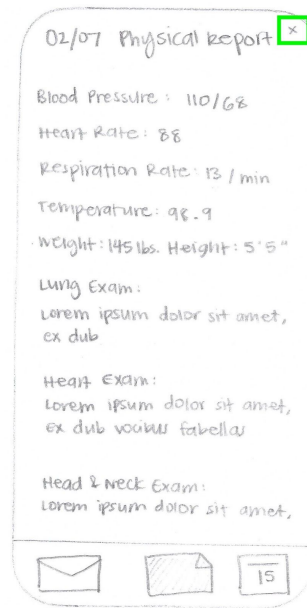 02/07 Physical Report ×
Blood Pressure: 110/68
Heart Rate: 88
Respiration Rate: 13 / min
Temperature: 98.9
Weight: 145 lbs. Height: 5'5"
Lung Exam:
Lorem ipsum dolor sit amet,
ex dub
Heart Exam:
Lorem ipsum dolor sit amet,
ex dub vocibus fabellas
Head & Neck Exam:
Lorem ipsum dolor sit amet,
15